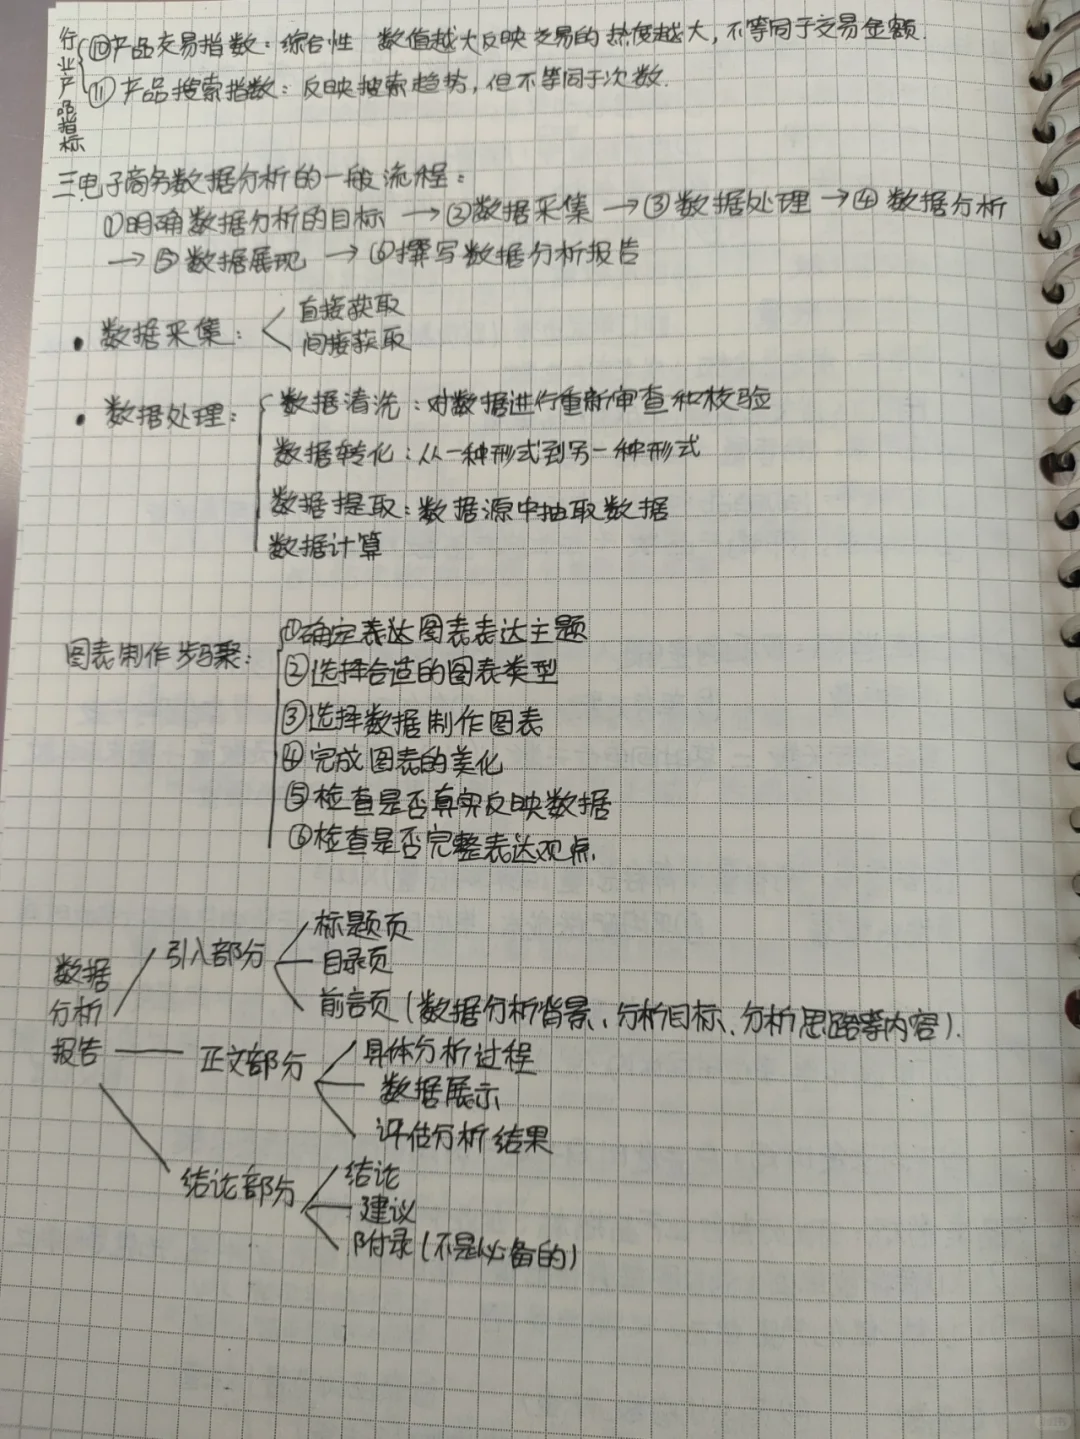 行业产品指标
⑩产品交易指数：综合性 数值越大反映交易的热度越大，不等同于交易金额.
⑪产品搜索指数：反映搜索趋势，但不等同于次数.
三.电子商务数据分析的一般流程：
①明确数据分析的目标→②数据采集→③数据处理→④数据分析
→⑤数据展现→⑥撰写数据分析报告
• 数据采集：
直接获取
间接获取
• 数据处理：
数据清洗：对数据进行重新审查和校验
数据转化：从一种形式到另一种形式
数据提取：数据源中抽取数据
数据计算
图表制作步骤：
①确定表达图表表达主题
②选择合适的图表类型
③选择数据制作图表
④完成图表的美化
⑤检查是否真实反映数据
⑥检查是否完整表达观点.
数据分析报告
引入部分
标题页
目录页
前言页(数据分析背景、分析目标、分析思路等内容).
正文部分
具体分析过程
数据展示
评估分析结果
结论部分
结论
建议
附录(不是必备的)